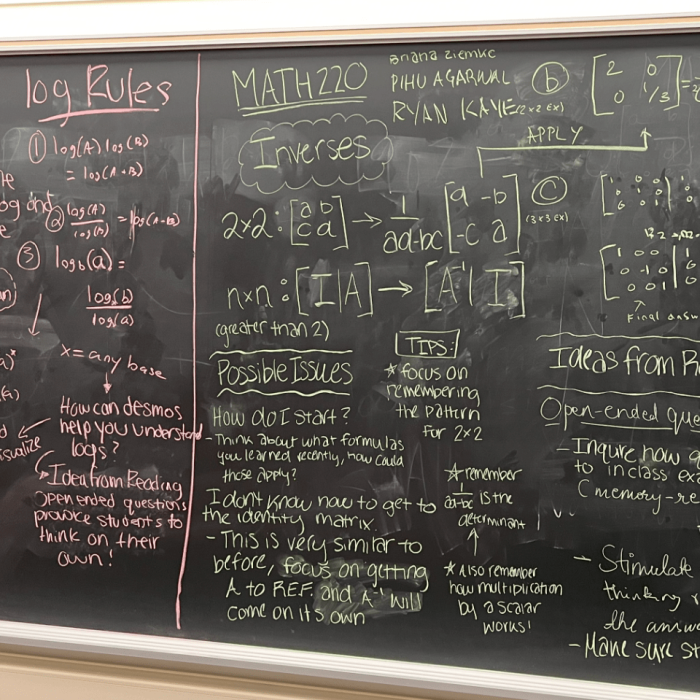 log Rules
① log(A) log(B)
= log(A+B)
② log(A) / log(B) = log(A-B)
③ log_b(a) =
log(b) / log(a)
x = any base
How can desmos
help you understand
logs?
Idea from Reading
open ended questions
provoke students to
think on their
own!
visualize
MATH 220
Briana Ziemke
PIHU AGARWAL
RYAN KAYE (2×2 EX)
ⓑ [2 0; 0 1/3] =
APPLY
Inverses
2×2: [a b; c d] → 1/(ad-bc) [a -b; -c a]
ⓒ
(3×3 EX)
n×n: [I|A] → [A⁻¹|I]
(greater than 2)
Final answ
Possible Issues
How do I start?
- Think about what formulas
you learned recently, how could
those apply?
I don't know how to get to
the identity matrix.
- This is very similar to
before, focus on getting
A to REF and A⁻¹ will
come on it's own
TIPS:
* focus on
remembering
the pattern
for 2×2
* remember
1/(ad-bc) is the
determinant
* Also remember
how multiplication
by a scalar
works!
Ideas from R
Open-ended que
- Inqure how
to in class ex
(memory-re
- Stimulate
thinking
the answe
- Make sure st